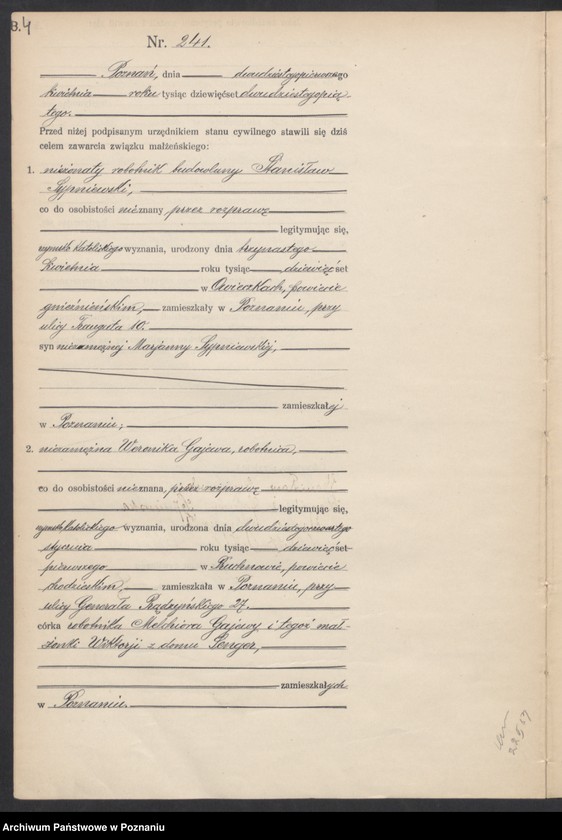 B.4
Nr. 241.
Poznań, dnia dwudziestegopierwszego
kwietnia roku tysiąc dziewięćset dwudziestegopią-
tego.
Przed niżej podpisanym urzędnikiem stanu cywilnego stawili się dziś
celem zawarcia związku małżeńskiego:
1. nieżonaty robotnik budowlany Stanisław
Sypniewski,
co do osobistości nieznany przez rozprawę
legitymując się,
rzymsko katolickiego wyznania, urodzony dnia trzynastego
kwietnia roku tysiąc dziewięćset
w Owieczkach, powiecie
gnieźnieńskim, zamieszkały w Poznaniu, przy
ulicy Trauguta 10.
syn niezamężnej Marjanny Sypniewskiej,
zamieszkałej
w Poznaniu;
2. niezamężna Weronika Gajewa, robotnica,
co do osobistości nieznana, przez rozprawę
legitymując się,
rzymskokatolickiego wyznania, urodzona dnia
stycznia roku tysiąc dziewięćset
pierwszego w powiecie
chodzieskim, zamieszkała w Poznaniu, przy
ulicy Generała Prądzyńskiego 27.
córka robotnika Melchiora Gajewy i tegoż mał-
żonki Wiktorji z domu
zamieszkałych
w Poznaniu.
Archiwum Państwowe w Poznaniu